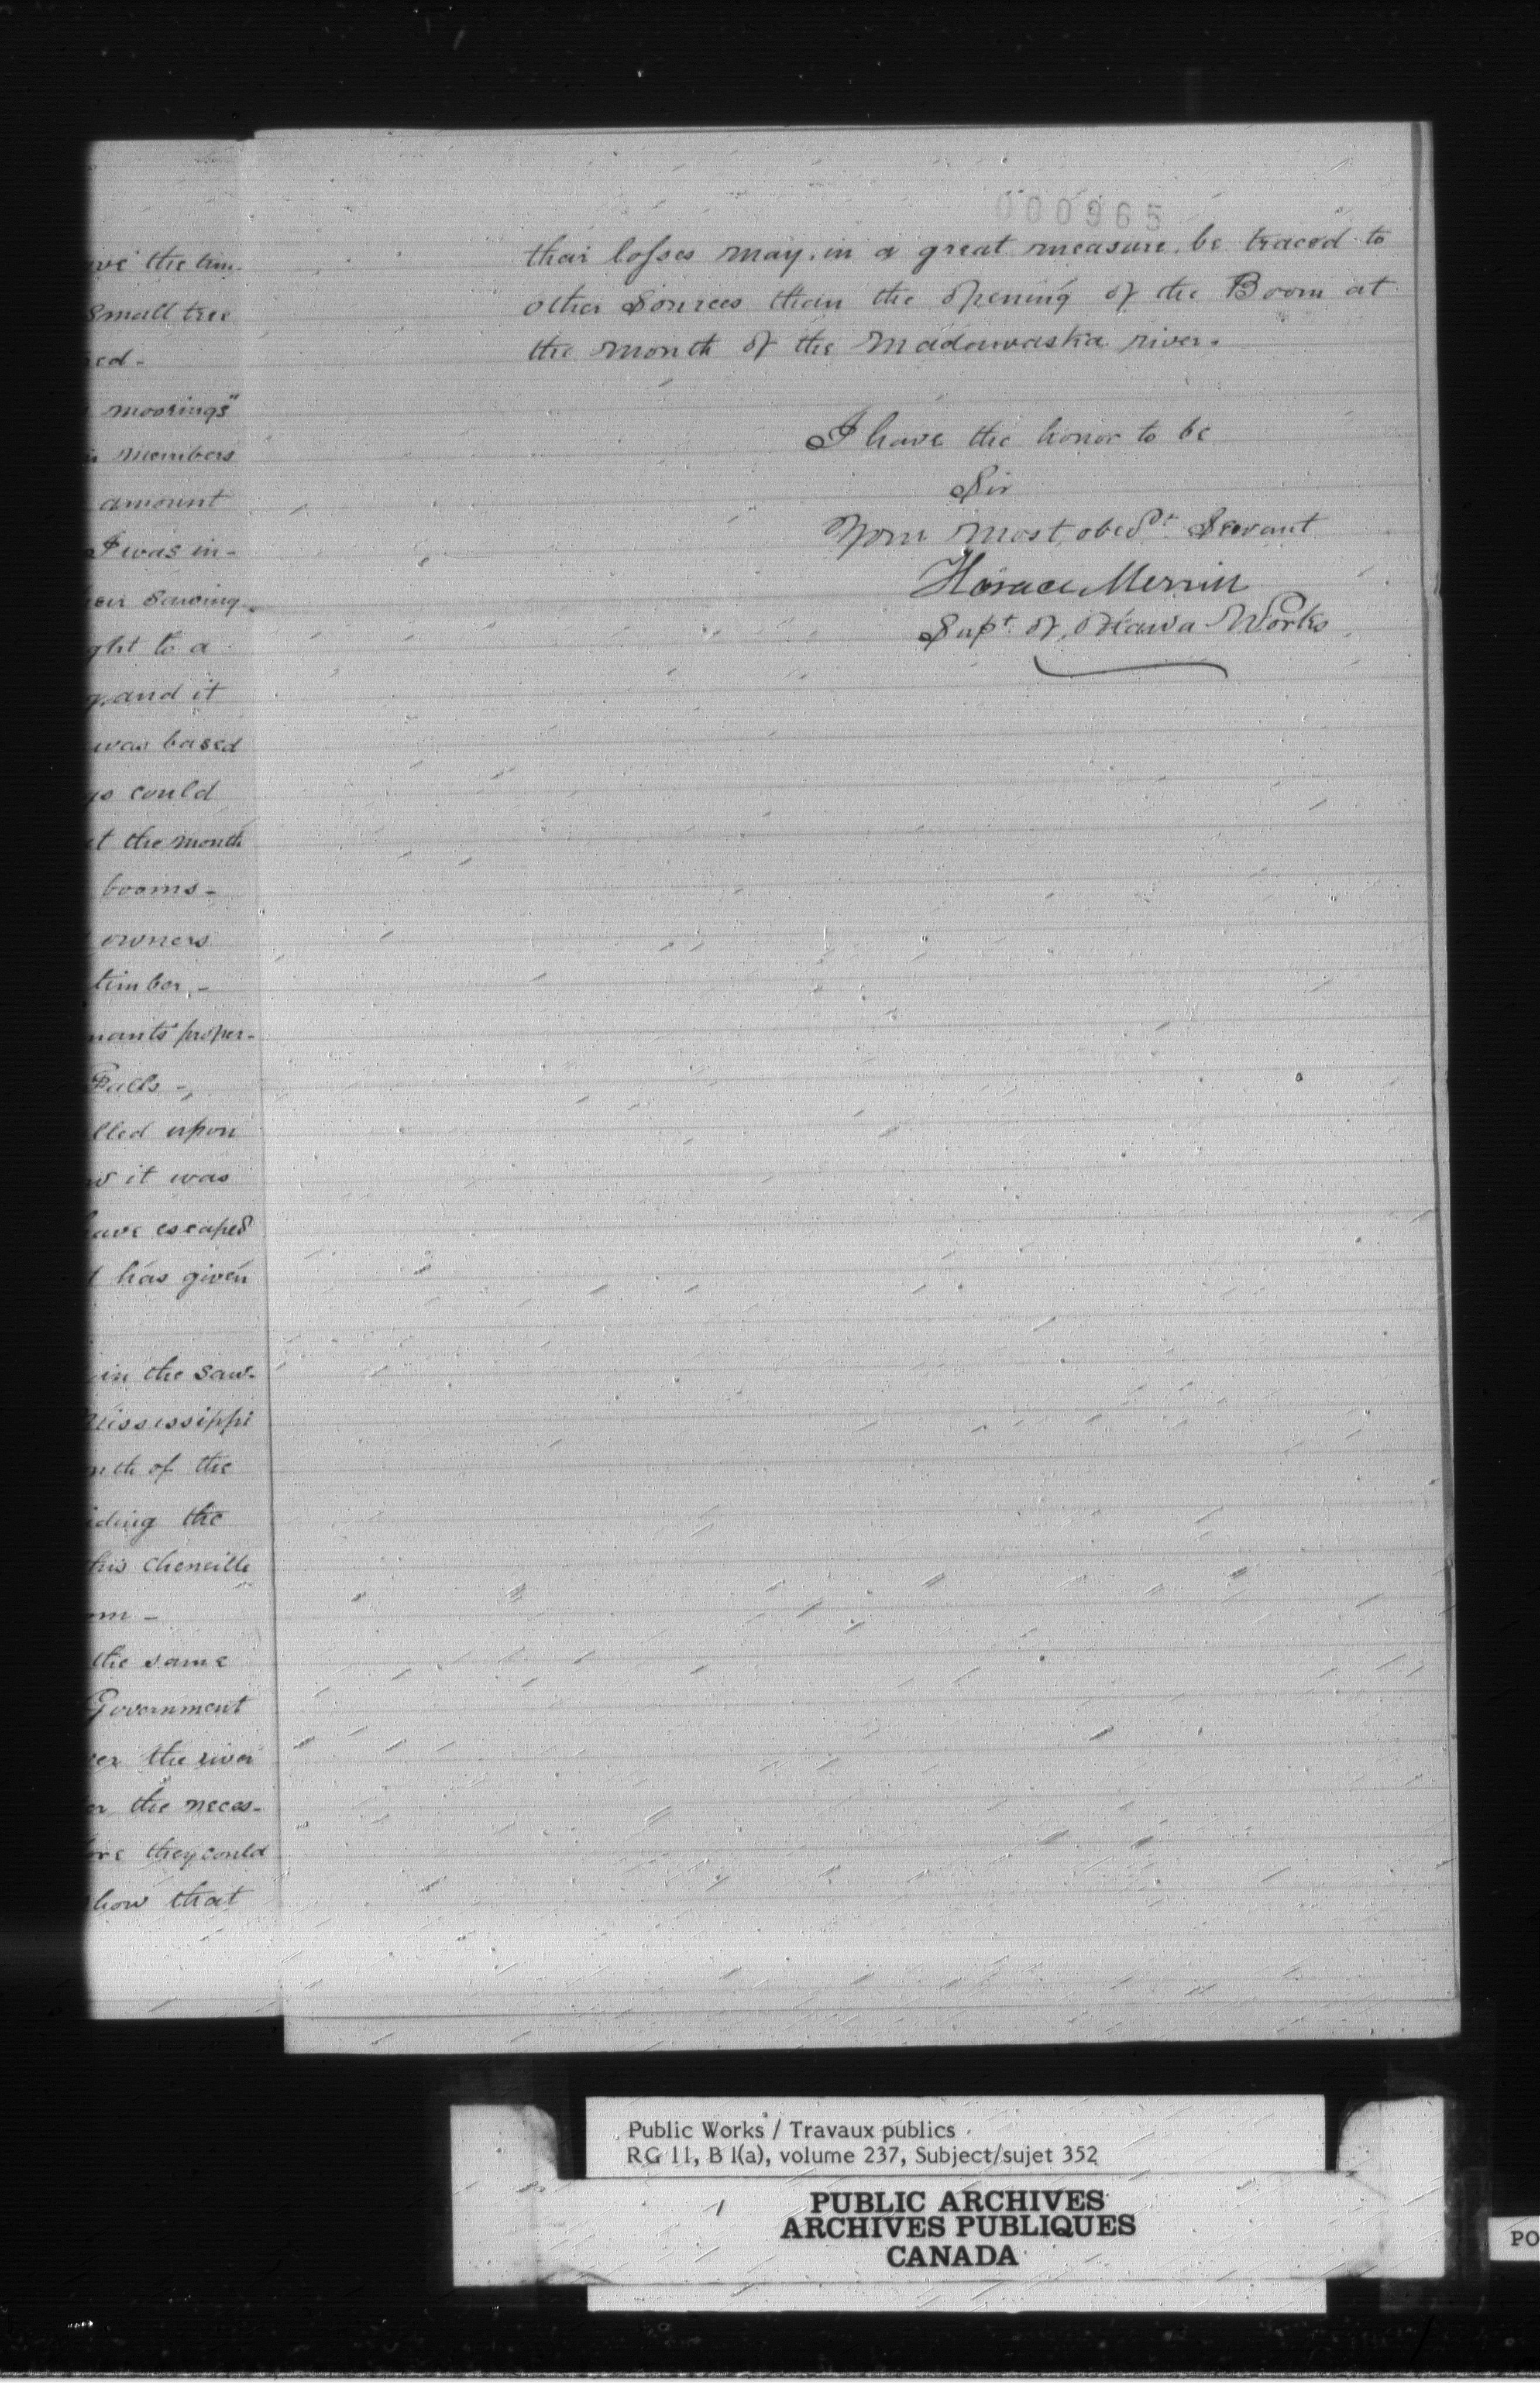 ve the tim-
small tree
ed-
moorings"
members
amount
I was in-
eir sawing
ght to a
g, and it
was based
gs could
at the mouth
booms-
owners
timber,-
mants' proper-
Falls-,
lled upon
w it was
have escaped
has given
in the saw-
Mississippi
uth of the
iding the
this cheneille
om-
the same
Government
ver the river
er the neces-
ore they could
how that
000965
their losses may, in a great measure, be traced to
other Sources than the opening of the Boom at
the mouth of the Madawaska river.
I have the honor to be
Sir
Your most obedt. Servant
Horace Merrill
Supt. of Ottawa Works
Public Works / Travaux publics
RG 11, B 1(a), volume 237, Subject/sujet 352
PUBLIC ARCHIVES
ARCHIVES PUBLIQUES
CANADA
PO